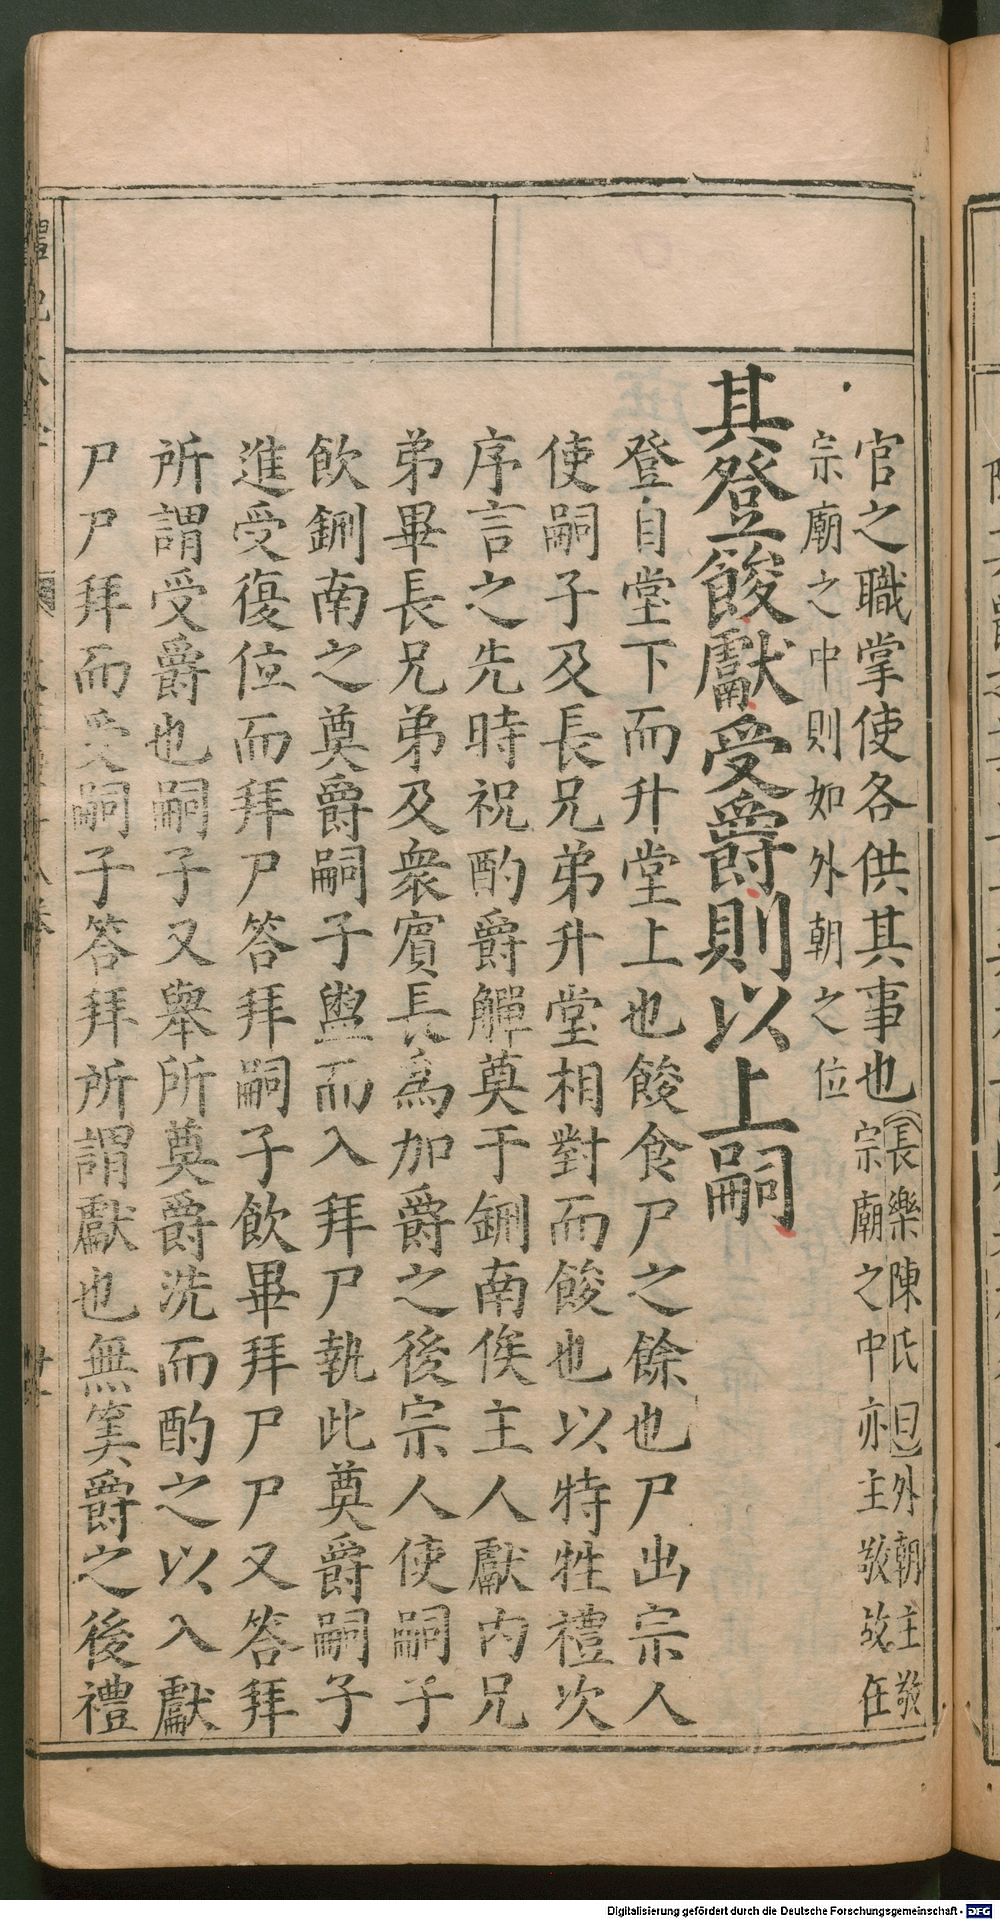 官之職掌使各供其事也(長樂陳氏曰)外朝主敬
宗廟之中亦主敬故在
宗廟之中則如外朝之位
其登餕獻受爵則以上嗣
登自堂下而升堂上也餕食尸之餘也尸出宗人
使嗣子及長兄弟升堂相對而餕也以特牲禮次
序言之先時祝酌爵觶奠于鉶南俟主人獻內兄
弟畢長兄弟及衆賓長爲加爵之後宗人使嗣子
飲鉶南之奠爵嗣子盥而入拜尸執此奠爵嗣子
進受復位而拜尸答拜嗣子飲畢拜尸尸又答拜
所謂受爵也嗣子又舉所奠爵洗而酌之以入獻
尸尸拜而受嗣子答拜所謂獻也無筭爵之後禮
Digitalisierung gefördert durch die Deutsche Forschungsgemeinschaft - DFG